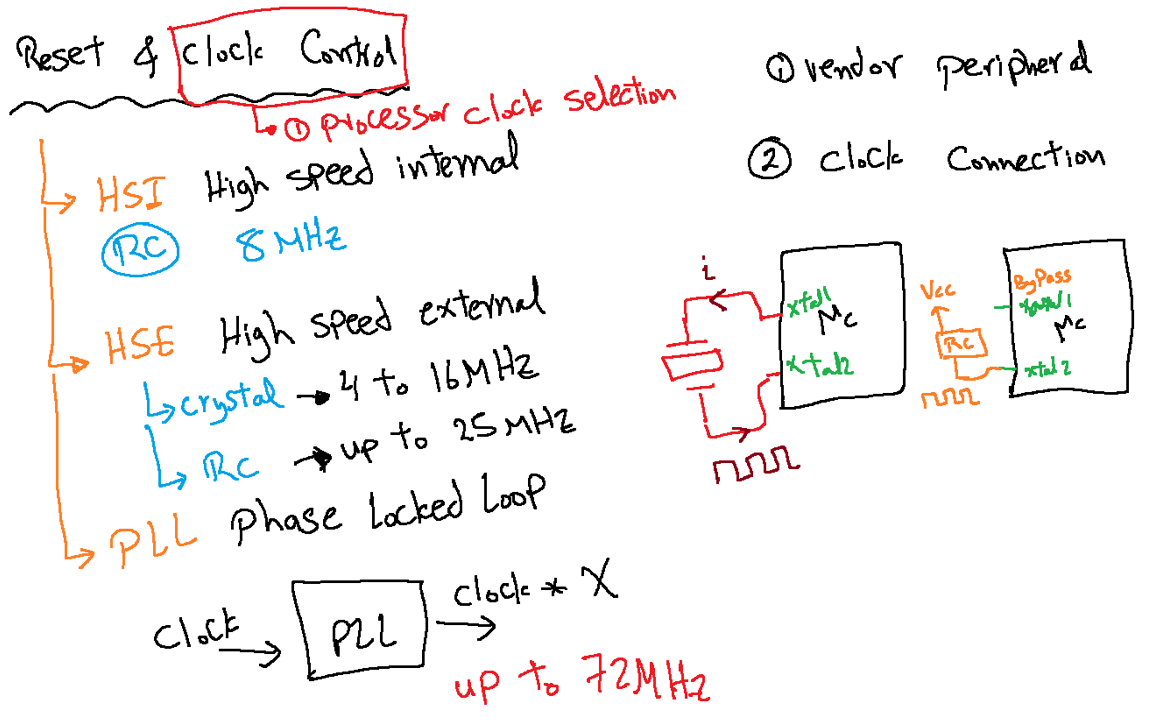 Reset & Clock Control
① processor clock selection
HSI High speed internal
RC 8 MHz
HSE High speed external
crystal → 4 to 16 MHz
RC → up to 25 MHz
PLL Phase Locked Loop
Clock → PLL → Clock * X
up to 72 MHz
① vendor peripheral
② Clock Connection
i
xtal1
Mc
xtal2
Vcc
RC
ByPass
xtal1
Mc
xtal2